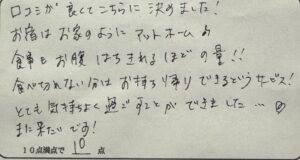 口コミが良くてこちらに決めました!
お宿はお家のようにアットホーム
食事もお腹はちきれるほどの量!!
食べきれない分はお持ち帰りできるというサービス!
とても気持ちよく過ごすことができました…
また来たいです!
10点満点で 10 点